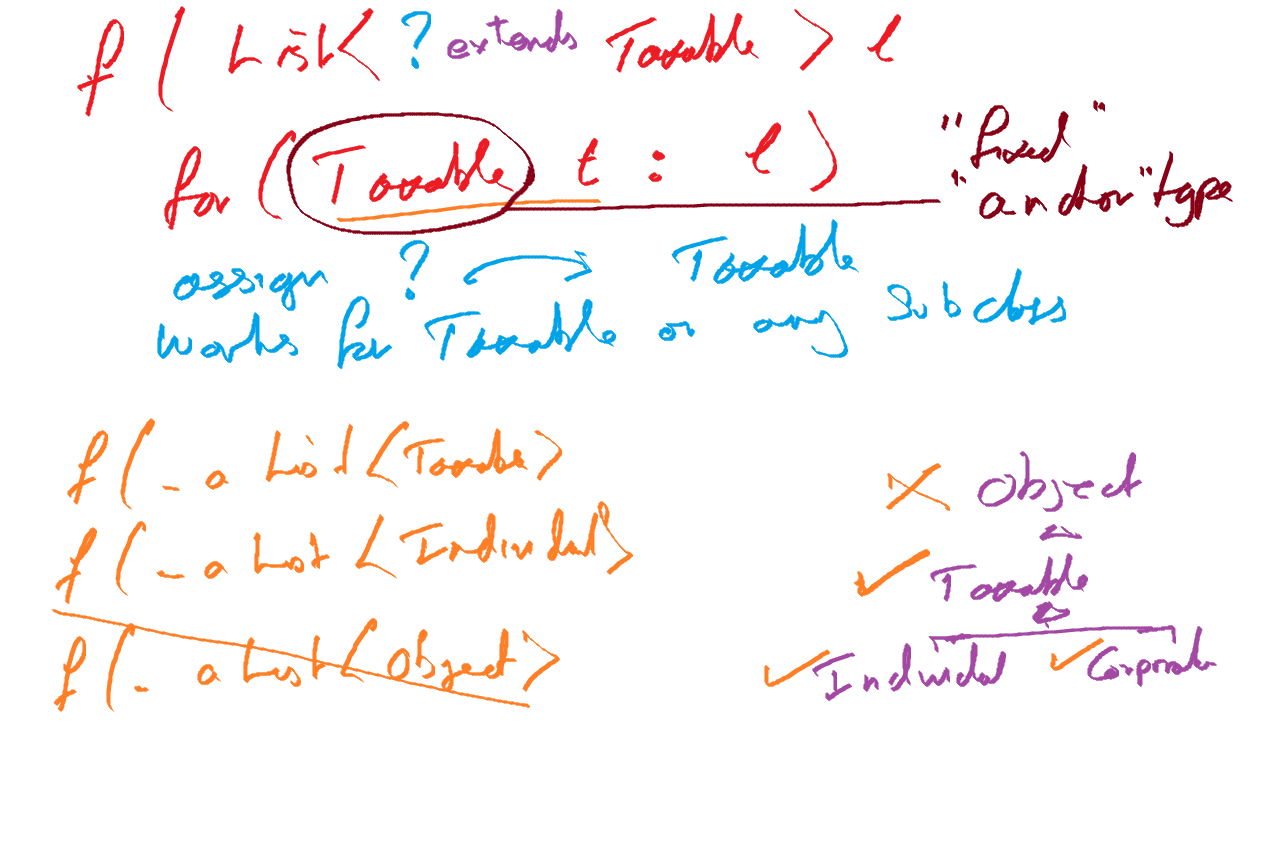 f ( List< ? extends Taxable > l
for ( Taxable t : l )
"fixed"
"anchor" type
assign ? Taxable
works for Taxable or any subclass
f ( _ a List <Taxable>
f ( _ a List < Individual>
f ( _ a List < Object >
Object
Taxable
Individual Corporate